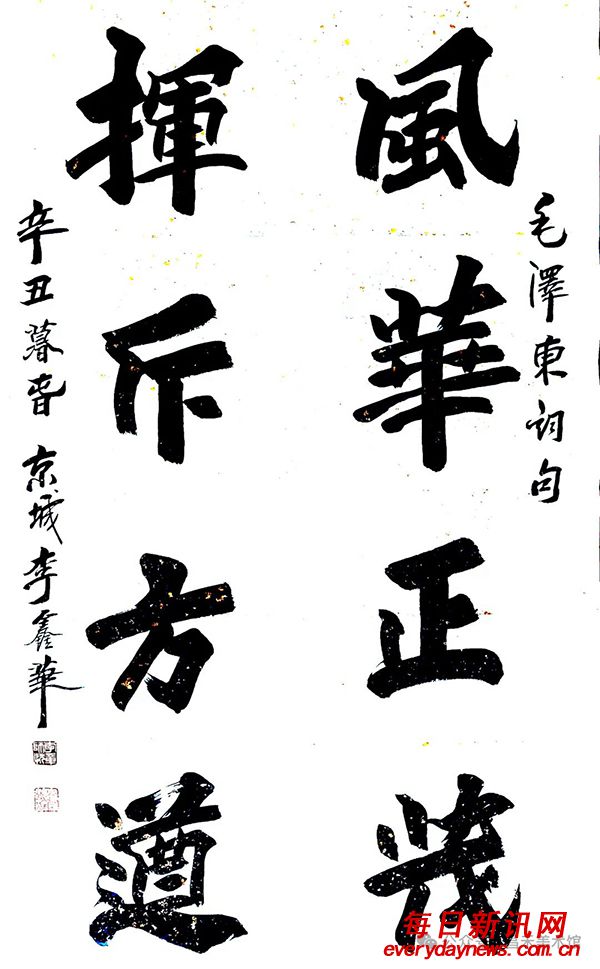 毛澤東詞句
風華正茂
揮斥方遒
辛丑暮春 京城李鑫華
每日新讯网
everydaynews.com.cn
美术馆